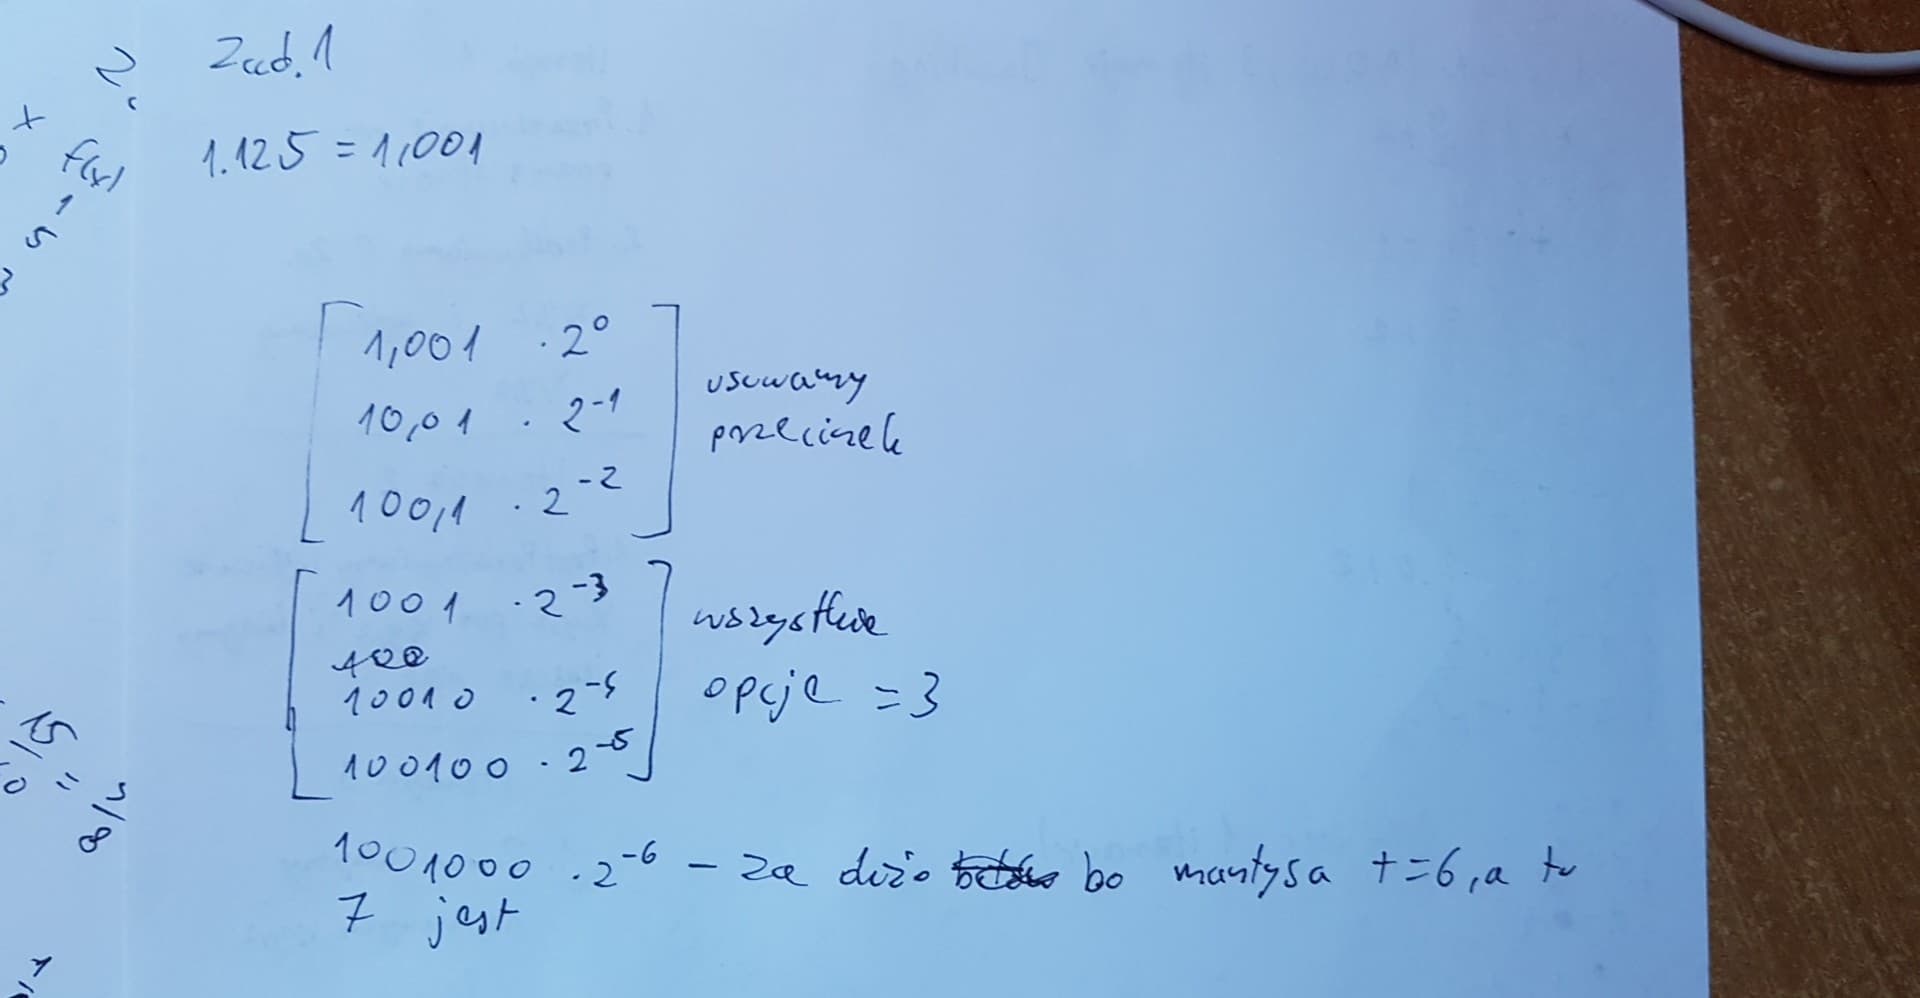 Zad. 1
1.125 = 1,001
1,001 · 2^0
10,01 · 2^-1
100,1 · 2^-2
usuwamy
przecinek
1001 · 2^-3
100
10010 · 2^-4
100100 · 2^-5
wszystkie
opcje = 3
1001000 · 2^-6 - za dużo bo mantysa t=6, a tu
7 jest
2.
x
f(x)
1
5
3